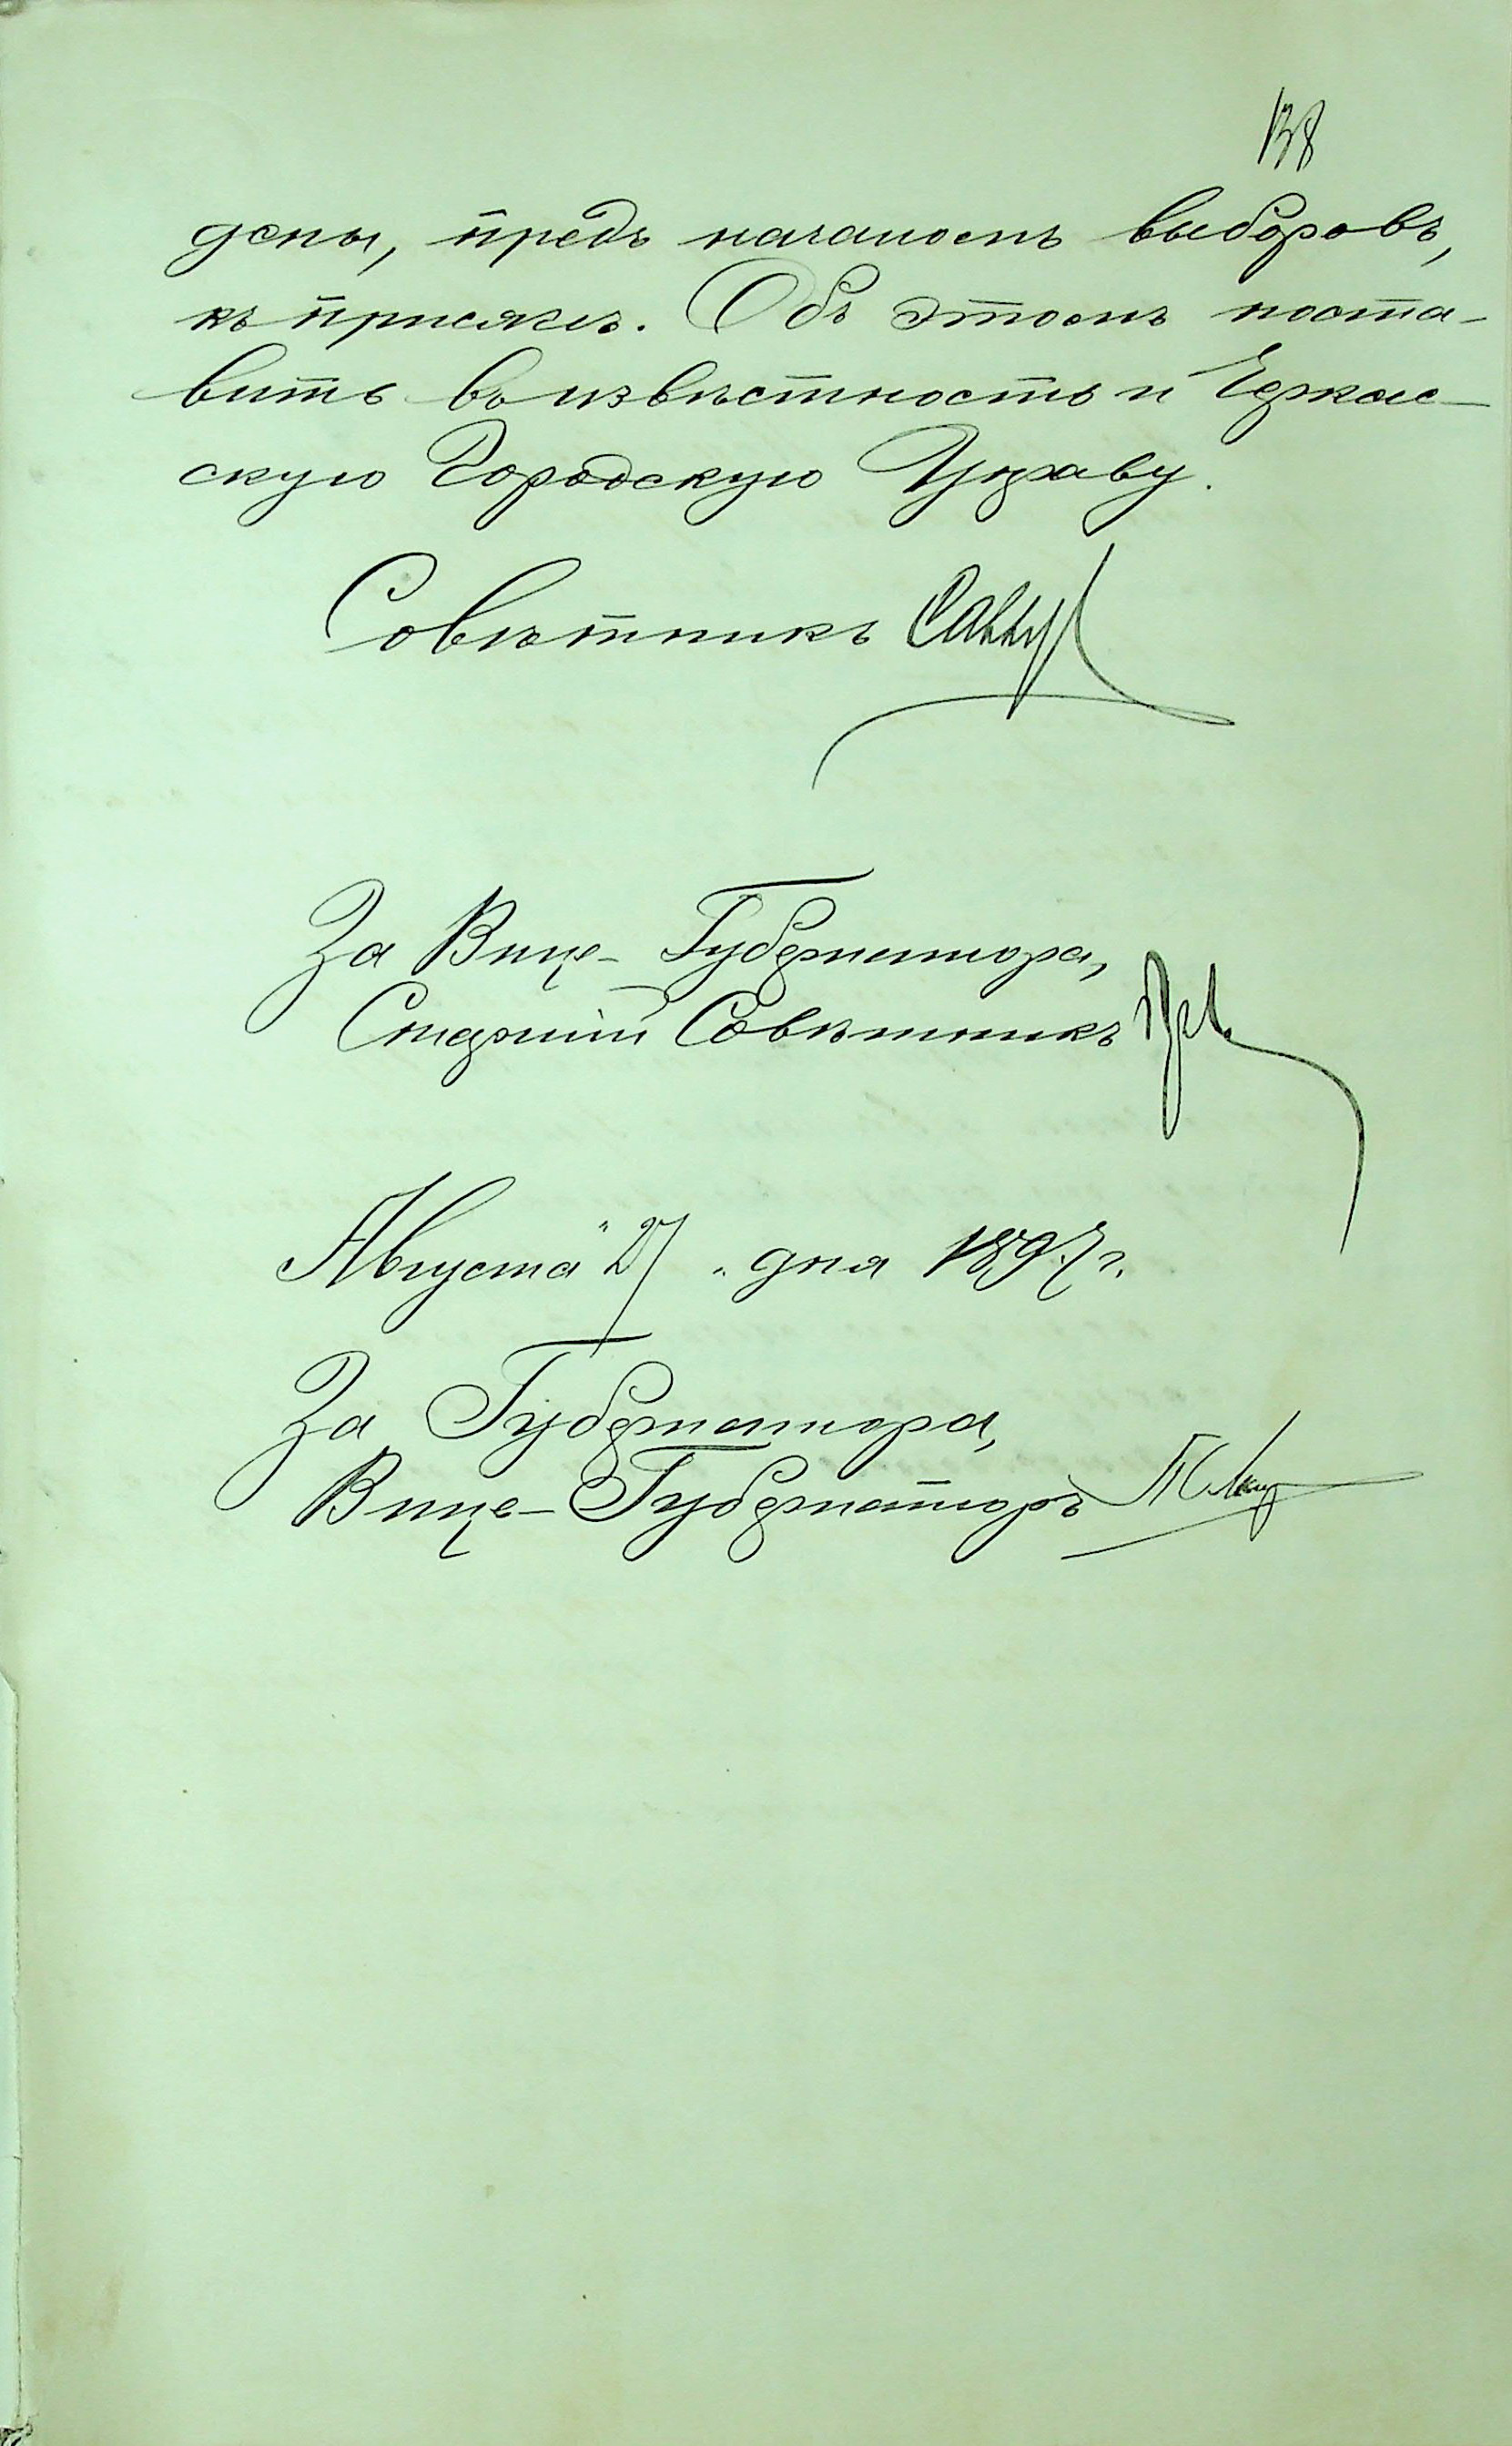 138
дены, предъ началомъ выборовъ,
къ присягѣ. Объ этомъ поста-
вить въ извѣстность и Черкас-
скую Городскую Управу.
Совѣтникъ
За Вице-Губернатора,
Старшій Совѣтникъ
Августа "27" дня 1897 г.
За Губернатора,
Вице-Губернаторъ